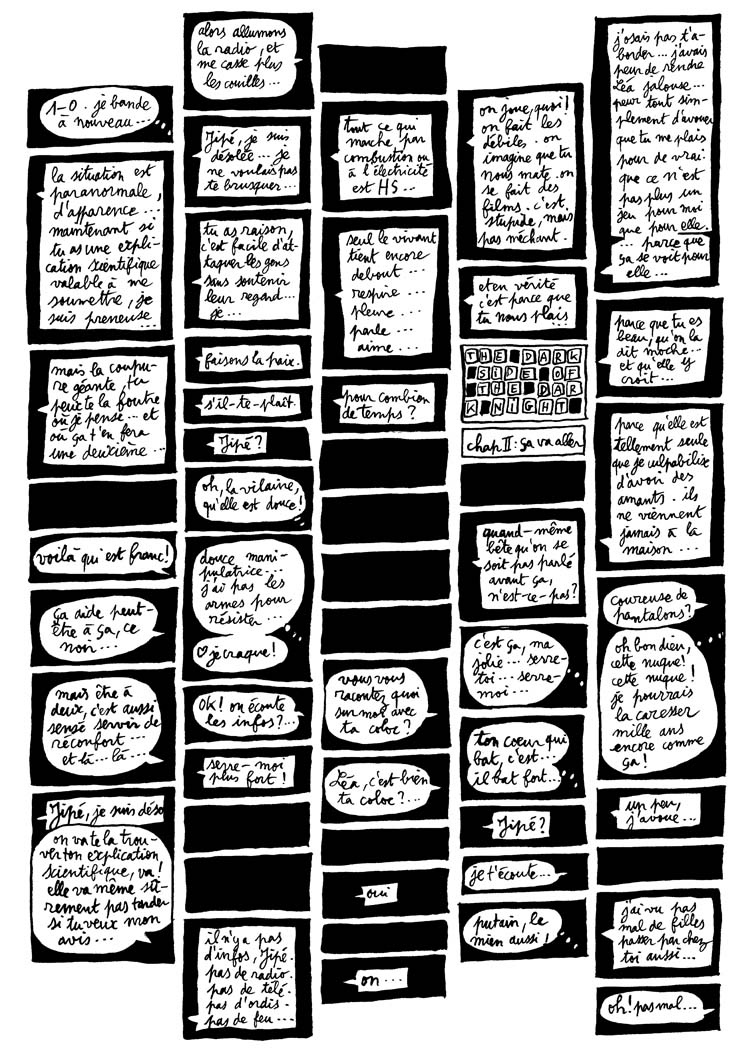 1-0. je bande
à nouveau...
la situation est
paranormale,
d'apparence...
maintenant si
tu as une expli-
cation scientifique
valable à me
soumettre, je
suis preneuse
...
mais la coupu-
re géante, tu
peux te la foutre
où je pense... et
où ça t'en fera
une deuxième...
voilà qui est franc!
ça aide peut-
être à ça, ce
noir...
mais être à
deux, c'est aussi
sensé servir de
réconfort...
et là... là...
Jipé, je suis déso
on va te la trou-
ver ton explication
scientifique, va!
elle va même sû-
rement pas tarder
si tu veux mon
avis...
alors allumons
la radio, et
me casse plus
les couilles...
Jipé, je suis
désolée... je
ne voulais pas
te brusquer...
tu as raison,
c'est facile d'at-
taquer les gens
sans soutenir
leur regard...
je...
faisons la paix.
s'il-te-plaît.
Jipé?
oh, la vilaine,
qu'elle est douce!
douce mani-
pulatrice...
j'ai pas les
armes pour
résister...
♡ je craque!
Ok! on écoute
les infos?...
serre-moi
plus fort!
il n'y a pas
d'infos, Jipé.
pas de radio.
pas de télé.
pas d'ordis.
pas de feu...
tout ce qui
marche par
combustion ou
à l'électricité
est HS...
seul le vivant
tient encore
debout...
respire...
pleure...
parle...
aime...
pour combien
de temps?
vous vous
racontez quoi
sur moi avec
ta coloc?
Léa, c'est bien
ta coloc?...
oui
on...
on joue, quoi!
on fait les
débiles. on
imagine que tu
nous mate. on
se fait des
films. c'est
stupide, mais
pas méchant.
et en vérité
c'est parce que
tu nous plais
...
THE DARK
SIDE OF
THE DAR
K KNIGHT
chap II: ça va aller
quand-même
bête qu'on se
soit pas parlé
avant ça,
n'est-ce-pas?
c'est ça, ma
jolie... serre-
toi... serre-
moi...
ton coeur qui
bat, c'est...
il bat fort...
Jipé?
je t'écoute...
putain, le
mien aussi!
j'osais pas t'a-
border... j'avais
peur de rendre
Léa jalouse...
peur tout sim-
plement d'avouer
que tu me plais
pour de vrai.
que ce n'est
pas plus un
jeu pour moi
que pour elle.
... parce que
ça se voit pour
elle...
parce que tu es
beau, qu'on la
dit moche...
et qu'elle y
croit...
parce qu'elle est
tellement seule
que je culpabilise
d'avoir des
amants. ils
ne viennent
jamais à la
maison...
coureuse de
pantalons?
oh bon dieu,
cette nuque!
cette nuque!
je pourrais
la caresser
mille ans
encore comme
ça!
un peu,
j'avoue...
j'ai vu pas
mal de filles
passer par chez
toi aussi...
oh! pas mal...